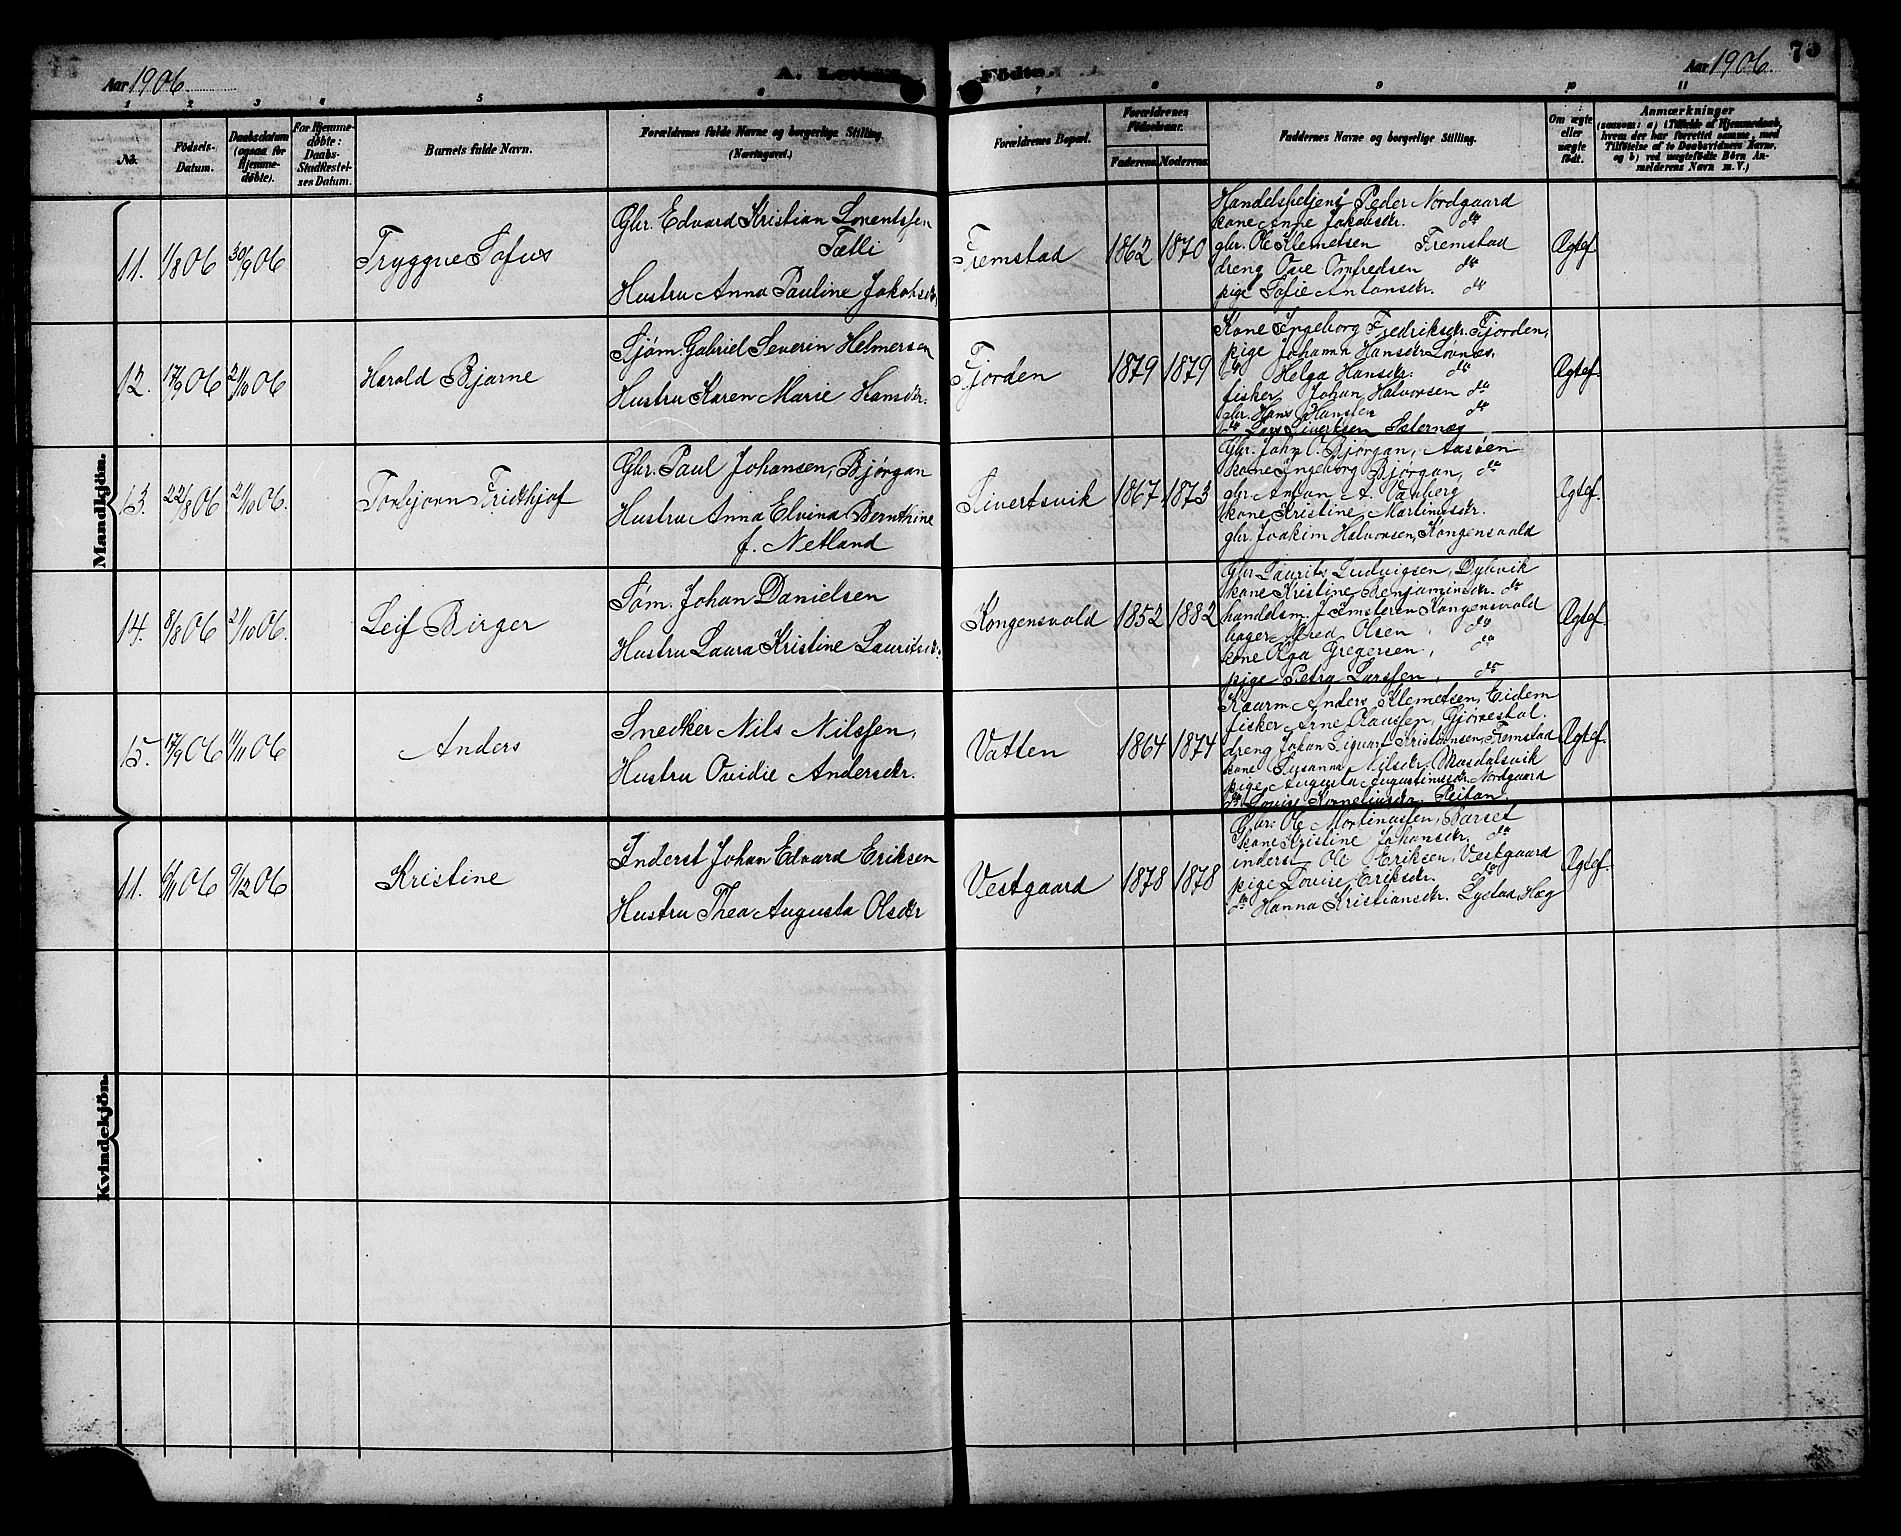 Aar 1906. A. Levende Födte. Aar 1906. 75
1 2 3 4 5 6 7 8 9 10 11
No.
Födsels-Datum.
Daabsdatum (ogsaa for Hjemme-døbte).
For Hjemme-døbte: Daabs-Stadfæstel-ses Datum.
Barnets fulde Navn.
Forældrenes fulde Navne og borgerlige Stilling.
(Næringsvei.)
Forældrenes Bopæl.
Forældrenes Födselsaar.
Faderens. Moderens.
Faddernes Navne og borgerlige Stilling.
Om ægte eller uægte födt.
Anmærkninger
(saasom: a) Tilfælde af Hjemmedaab,
hvem der har forrettet samme, med
Tilföielse af to Daabsvidners Navne,
og b) ved uægtefödte Börn An-
melderens Navn m. V.)
Mandkjön.
11. 1/8 06 30/9 06 Tryggve Sofus
Gbr. Edvard Kristian Lorentsen
Tætli
Hustru Anna Pauline Jakobsdr.
Fremstad 1862 1870
Handelsbetjent Peder Nordgaard
kone Anne Jakobsdr. do
gbr. Ole Klemetsen Fremstad
dreng Ove Omfredsen do
pige Sofie Antonsdr. do
Ægtef.
12. 17/9 06 21/10 06 Harald Bjarne
Sjöm. Gabriel Severin Helmersen
Hustru Karen Marie Hansdr.
Fjorden 1879 1879
Kone Ingeborg Fredriksdr. Fjorden,
pige Johanna Hansdr. Lövnes,
do Helga Hansdr. do
fisker Johan Halvorsen do
gbr. Hans Hansen do
do Lars Sivertsen Selernæs
Ægtef.
13. 22/8 06 21/10 06. Torbjørn Fridthjof
Gbr. Paul Johansen, Bjørgan
Hustru Anna Elvina Bernthine
f. Netland
Sivertsvik 1867 1873
Gbr. John O. Bjørgan, Aasöen
kone Ingeborg Bjørgan, do
gbr. Anton A. Vanberg
kone Kristine Martinusdr.
gbr. Joakim Halvorsen, Kongensvold
Ægtef.
14. 8/8 06 21/10 06. Leif Birger
Söm. Johan Danielsen
Hustru Laura Kristine Lauritsdr.
Kongensvold 1852 1882
Gbr. Laurits Ludvigsen, Dybvik
kone Kristine Benjaminsdr. do
handelsm. J. Kongensvold
bager Olsen, do
kone Olga Gregersen, do
pige Petra Larssen, do
Ægtef.
15. 17/9 06 11/11 06 Anders
Snedker Nils Nilssen,
Hustru Ovidie Andersdr.
Vatten 1864 1874
Kaarm. Anders Klemetsen, Eidem
fisker Arne Olaussen,
dreng Johan Sigvart Kristiansen, Fremstad
kone Susanna Nilsdr. Masdalsvik
pige Augusta Augustinusdr. Nordgaard
do Lovise Korneliusdr. Reitan.
Ægtef.
Kvindekjön.
11. 6/11 06 9/12 06 Kristine
Inderst Johan Edvard Eriksen
Hustru Thea Augusta Olsdr
Vestgaard 1878 1878
Gbr. Ole Martinussen, Barset
kone Kristine Johansdr. do
inderst Ole Eriksen, Vestgaard
pige Lovise Eriksdr. do
do Hanna Kristiansdr.
Ægtef.